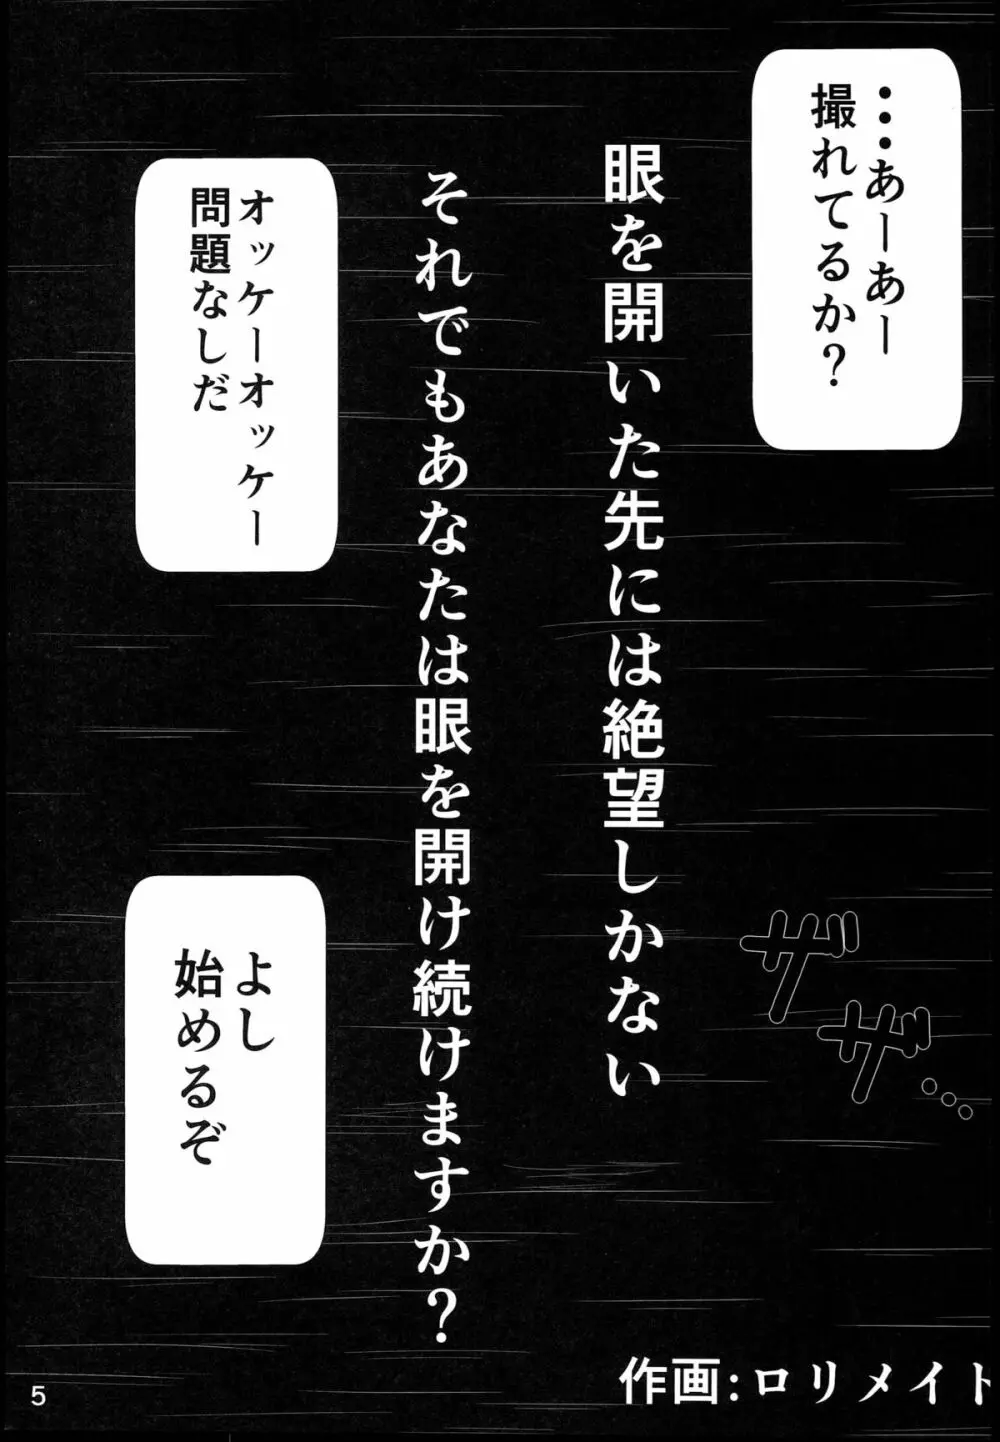 ・・・あーあー
撮れてるか?
眼を開いた先には絶望しかない
それでもあなたは眼を開け続けますか?
オッケーオッケー
問題なしだ
ザザ…
よし
始めるぞ
作画:ロリメイト
5